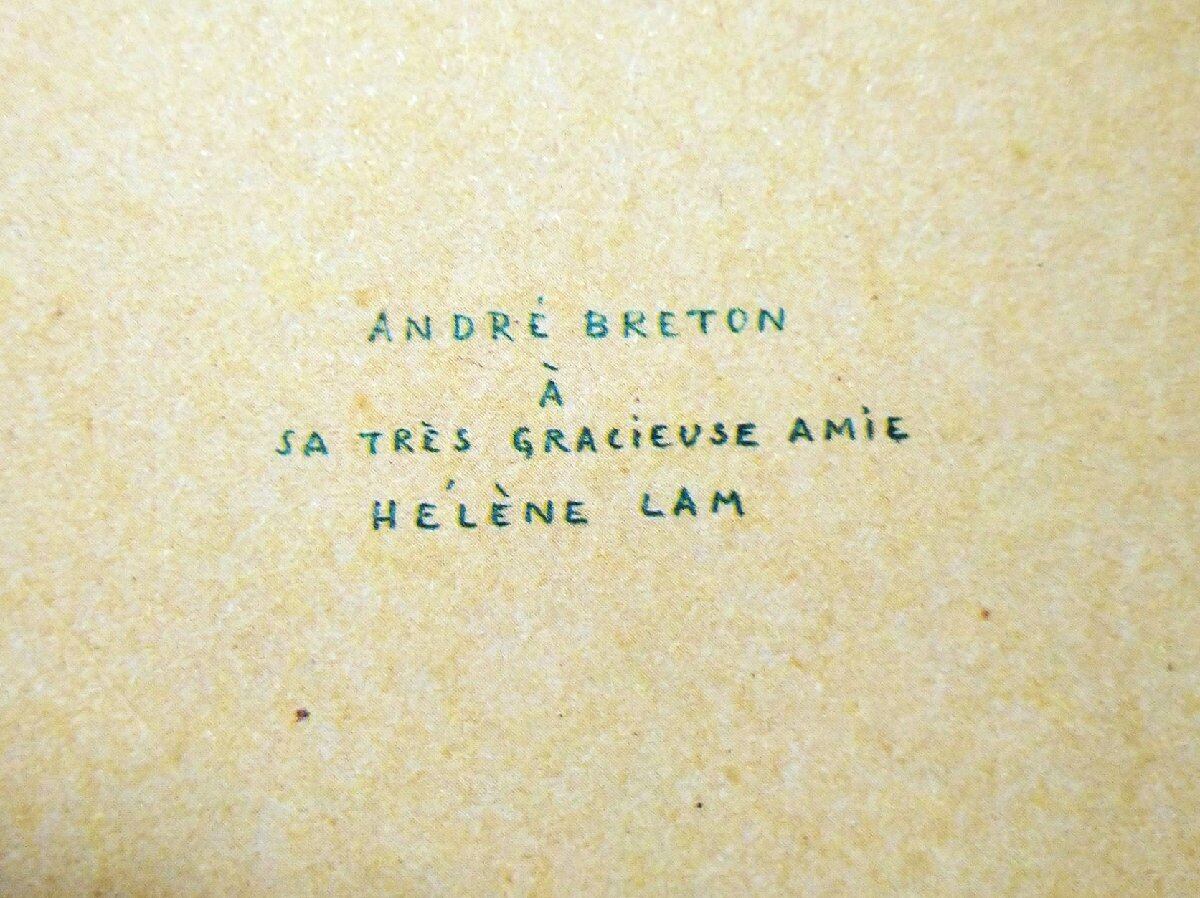 ANDRÉ BRETON
À
SA TRÈS GRACIEUSE AMIE
HÉLÈNE LAM